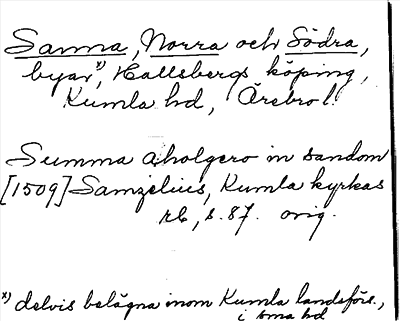 Sanna, Norra och Södra,
byar x), Hallsbergs köping,
Kumla hd, Örebro l.
Summa aholgero in sandom
[1509] Samzelius, Kumla kyrkas
rb, s. 87. orig.
x) delvis belägna inom Kumla landsförs.,
i sma hd